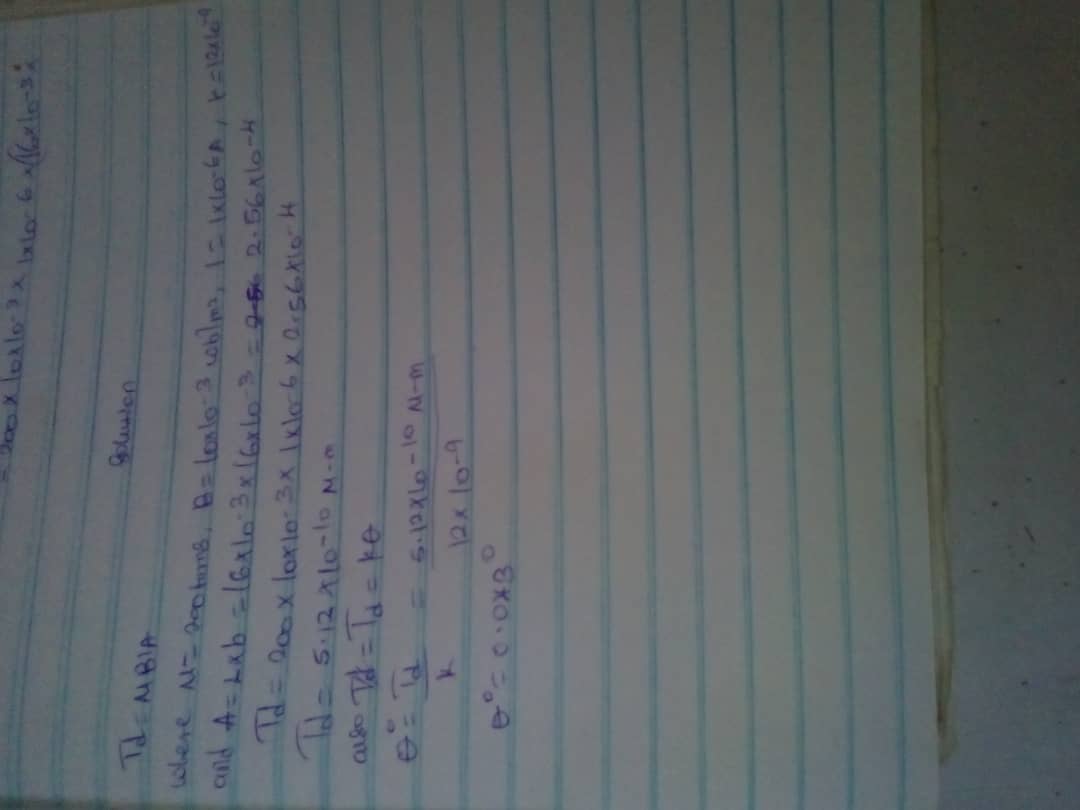 = 200 x 10x10-3 x 1x10-6 x (16x10-3)2
Solution
Td = NBIA
where N = 200turns, B = 10x10-3 wb/m2, I = 1x10-6A, k = 12x10-9
and A = Lxb = 16x10-3 x 16x10-3 = 2.56 2.56x10-4
Td = 200 x 10x10-3 x 1x10-6 x 2.56x10-4
Td = 5.12 x10-10 N-m
also Td = Td = kθ
θ° = Td = 5.12x10-10 N-m
k 12x10-9
θ° = 0.0